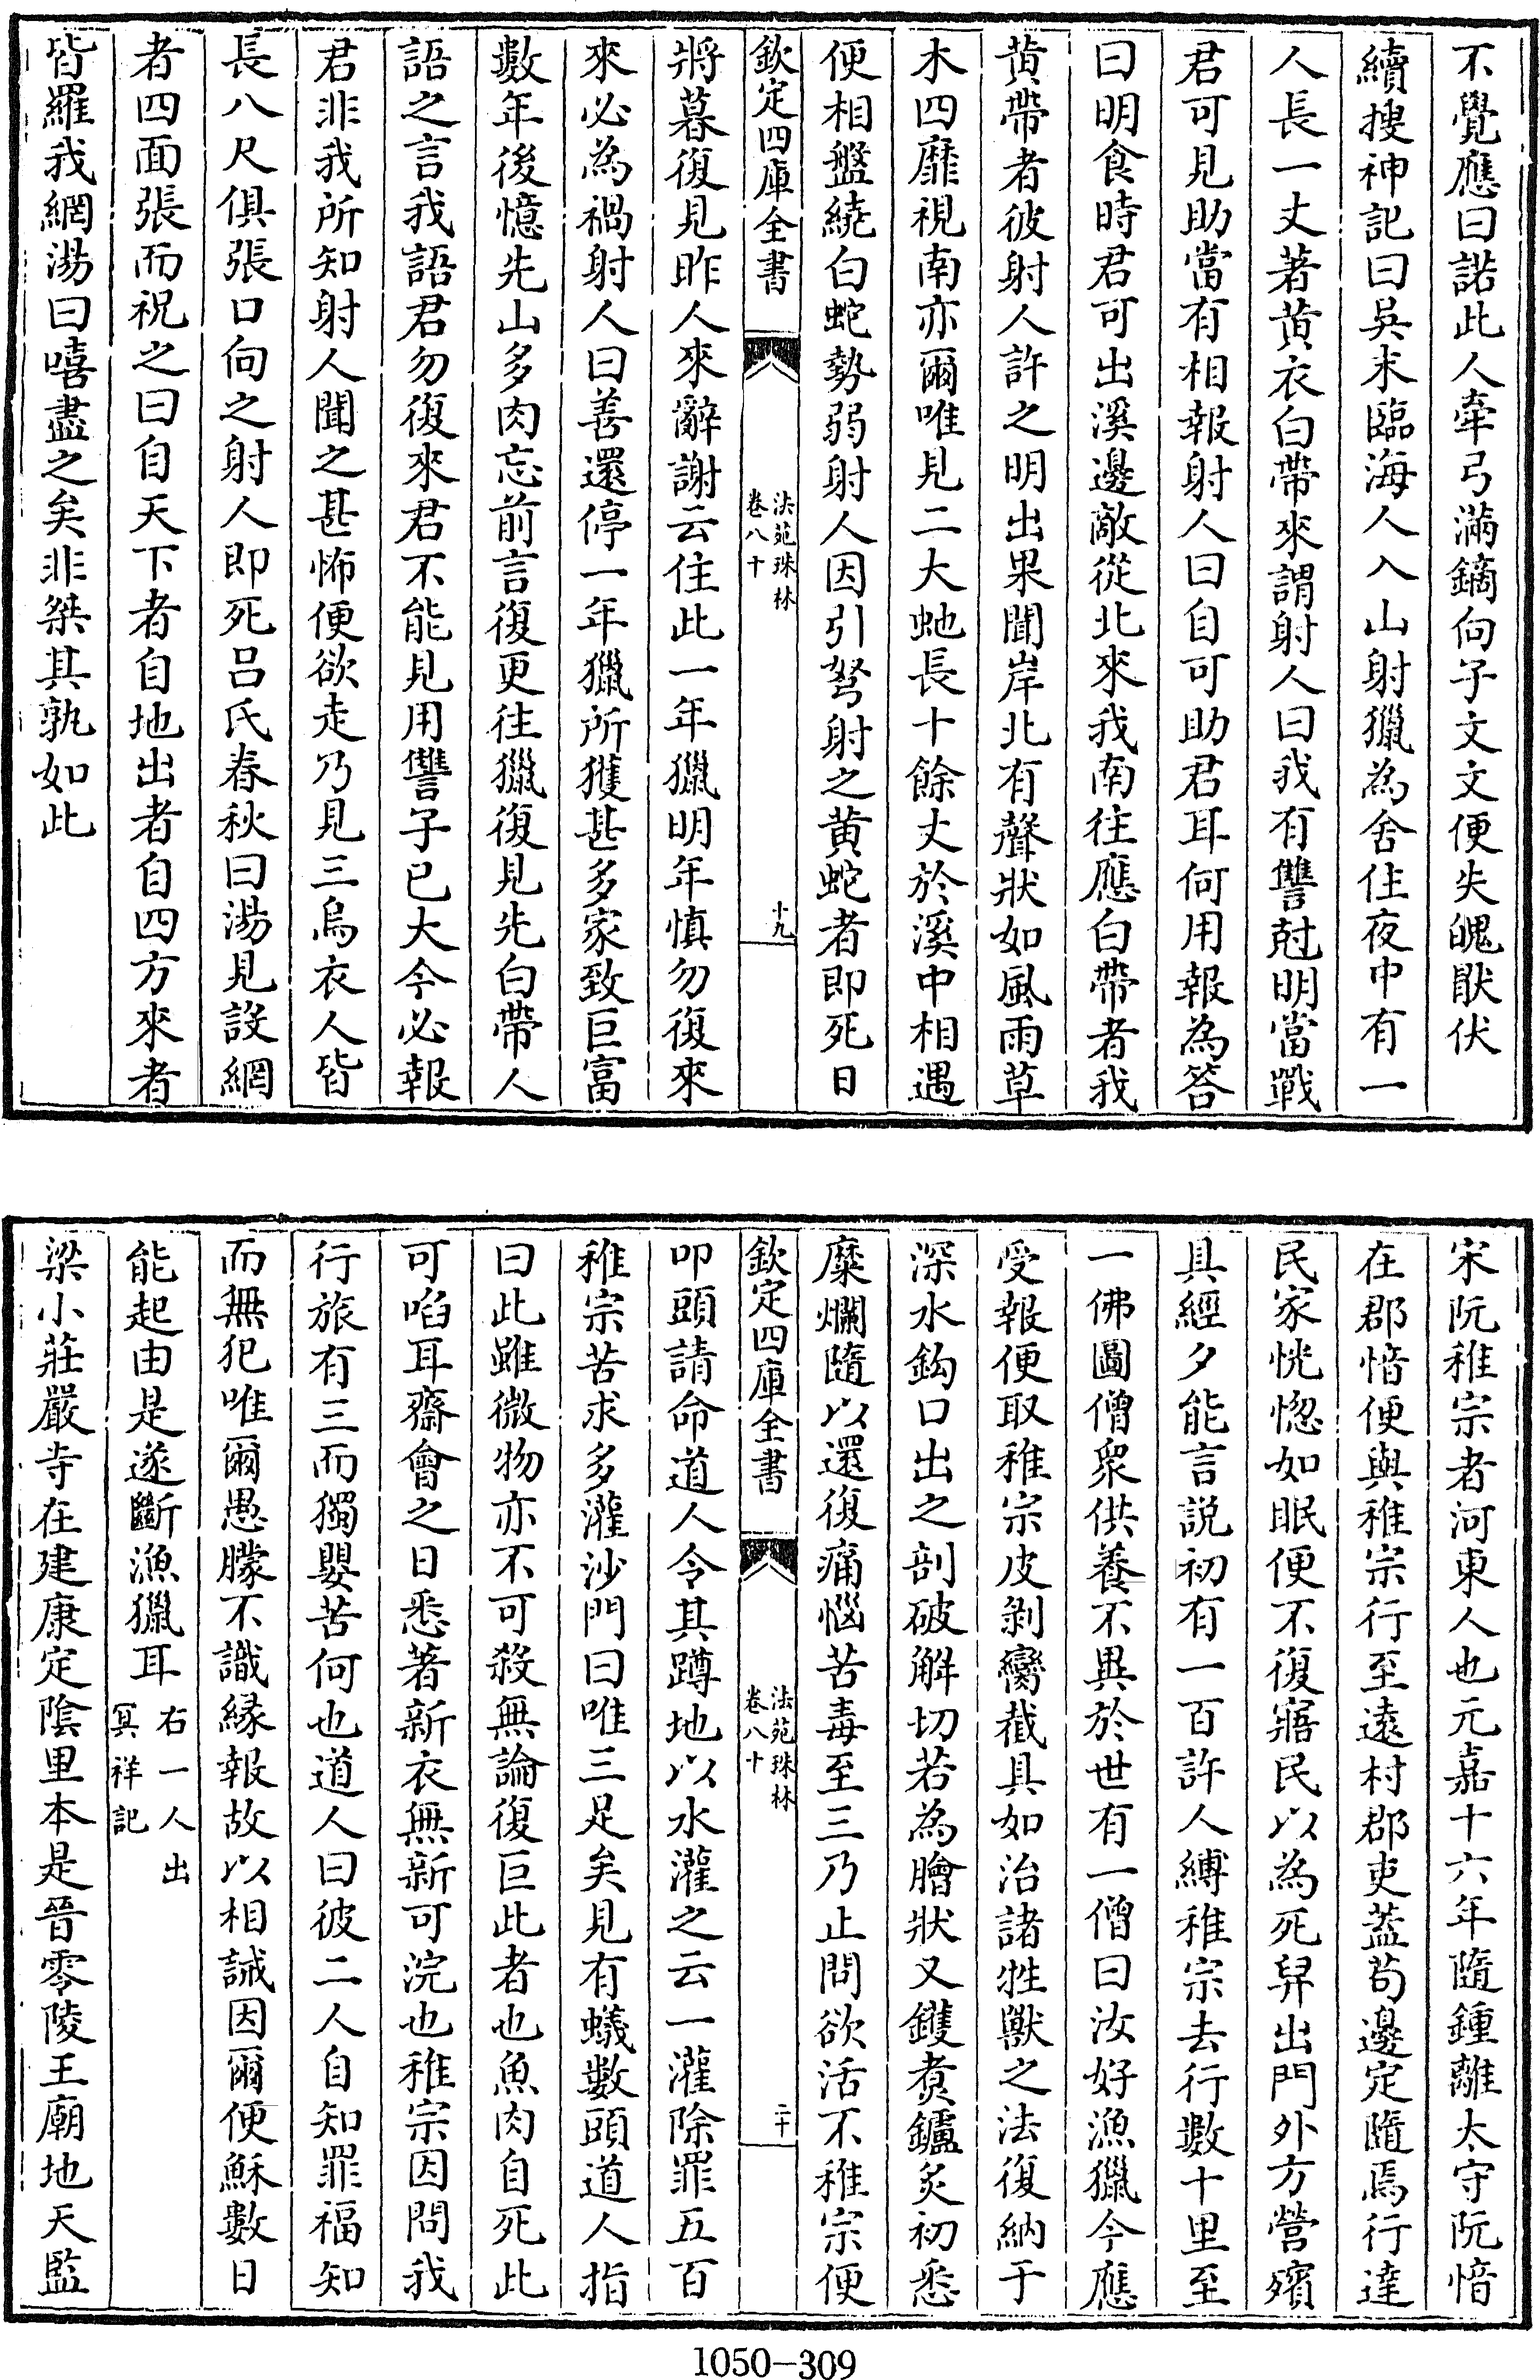 不覺應曰諾此人牽弓滿鏑向子文文便失魄猒伏
續搜神記曰吳末臨海人入山射獵為舍住夜中有一
人長一丈著黄衣白帶來謂射人曰我有讐尅明當戰
君可見助當有相報射人曰自可助君耳何用報為答
曰明食時君可出溪邊敵從北來我南往應白帶者我
黄帶者彼射人許之明出果聞岸北有聲狀如風雨草
木四靡視南亦爾唯見二大虵長十餘丈於溪中相遇
便相盤繞白蛇勢弱射人因引弩射之黄蛇者即死日
欽定四庫全書
法苑珠林
卷八十
十九
將暮復見昨人來辭謝云住此一年獵明年慎勿復來
來必為禍射人曰善還停一年獵所獲甚多家致巨富
數年後憶先山多肉忘前言復更往獵復見先白帶人
語之言我語君勿復來君不能見用讐子已大今必報
君非我所知射人聞之甚怖便欲走乃見三烏衣人皆
長八尺俱張口向之射人即死吕氏春秋曰湯見設網
者四面張而祝之曰自天下者自地出者自四方來者
皆羅我網湯曰嘻盡之矣非桀其孰如此
宋阮稚宗者河東人也元嘉十六年隨鍾離太守阮愔
在郡愔便與稚宗行至遠村郡吏葢苟邊定隨焉行達
民家恍惚如眠便不復寤民以為死舁出門外方營殯
具經夕能言説初有一百許人縛稚宗去行數十里至
一佛圖僧衆供養不異於世有一僧曰汝好漁獵今應
受報便取稚宗皮剝臠截具如治諸牲獸之法復納于
深水鈎口出之剖破解切若為膾狀又鑊煑鑪炙初悉
糜爛隨以還復痛惱苦毒至三乃止問欲活不稚宗便
欽定四庫全書
法苑珠林
卷八十
二十
叩頭請命道人令其蹲地以水灌之云一灌除罪五百
稚宗苦求多灌沙門曰唯三足矣見有蟻數頭道人指
曰此雖微物亦不可殺無論復巨此者也魚肉自死此
可啗耳齋會之日悉著新衣無新可浣也稚宗因問我
行旅有三而獨嬰苦何也道人曰彼二人自知罪福知
而無犯唯爾愚朦不識縁報故以相誡因爾便穌數日
能起由是遂斷漁獵耳
右一人出
冥祥記
梁小莊嚴寺在建康定陰里本是晉零陵王廟地天監
1050-309